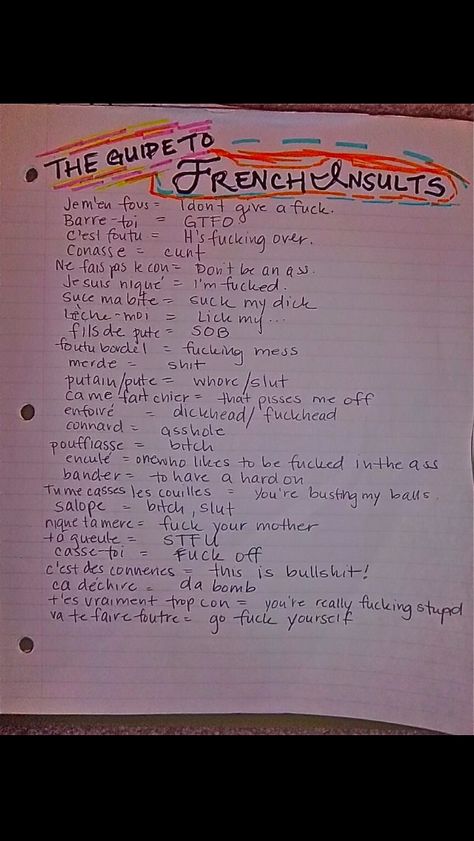 THE GUIDE TO
FRENCH INSULTS
Je m'en fous = I don't give a fuck.
Barre-toi = GTFO
C'est foutu = It's fucking over.
Conasse = cunt
Ne fais pas le con = Don't be an ass.
Je suis niqué = I'm fucked.
Suce ma bite = suck my dick
Lèche-moi = Lick my...
fils de pute = SOB
foutu bordèl = fucking mess
merde = shit
putain/pute = whore/slut
Ca me fait chier = that pisses me off
enfoiré = dickhead/fuckhead
connard = asshole
pouffiasse = bitch
enculé = one who likes to be fucked in the ass
bander = to have a hard on
Tu me casses les couilles = you're busting my balls.
salope = bitch, slut
nique ta mere = fuck your mother
ta gueule = STFU
casse-toi = Fuck off
c'est des conneries = this is bullshit!
ca déchire = da bomb
t'es vraiment trop con = you're really fucking stupid
va te faire foutre = go fuck yourself